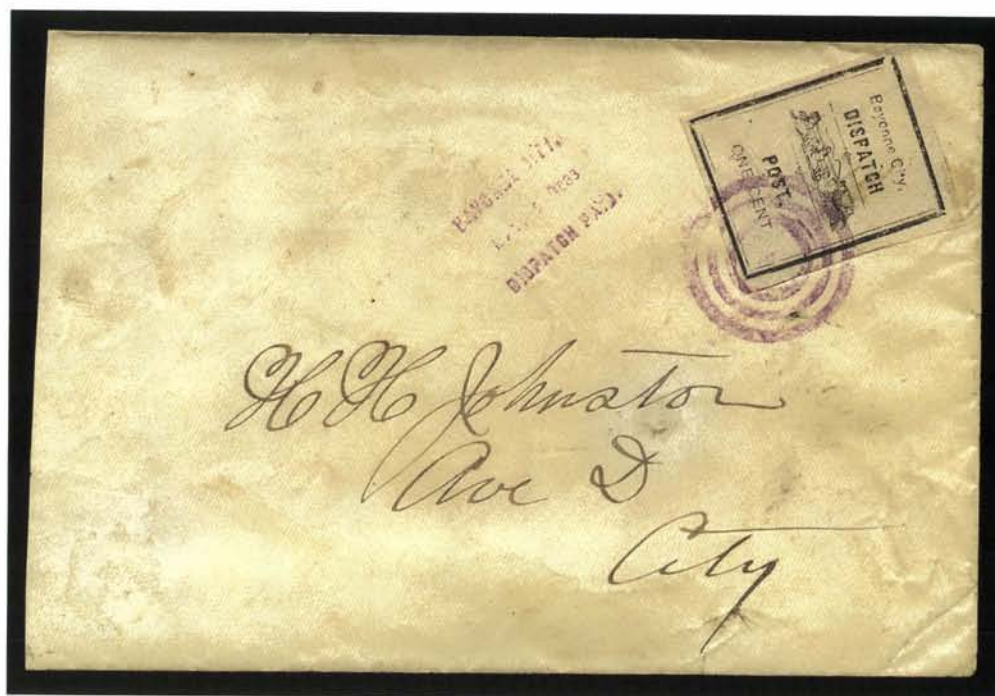 Bayonne City,
DISPATCH
POST,
ONE CENT
BAYONNE CITY.
1883
DISPATCH PAID.
H H Johnston
Ave D
City